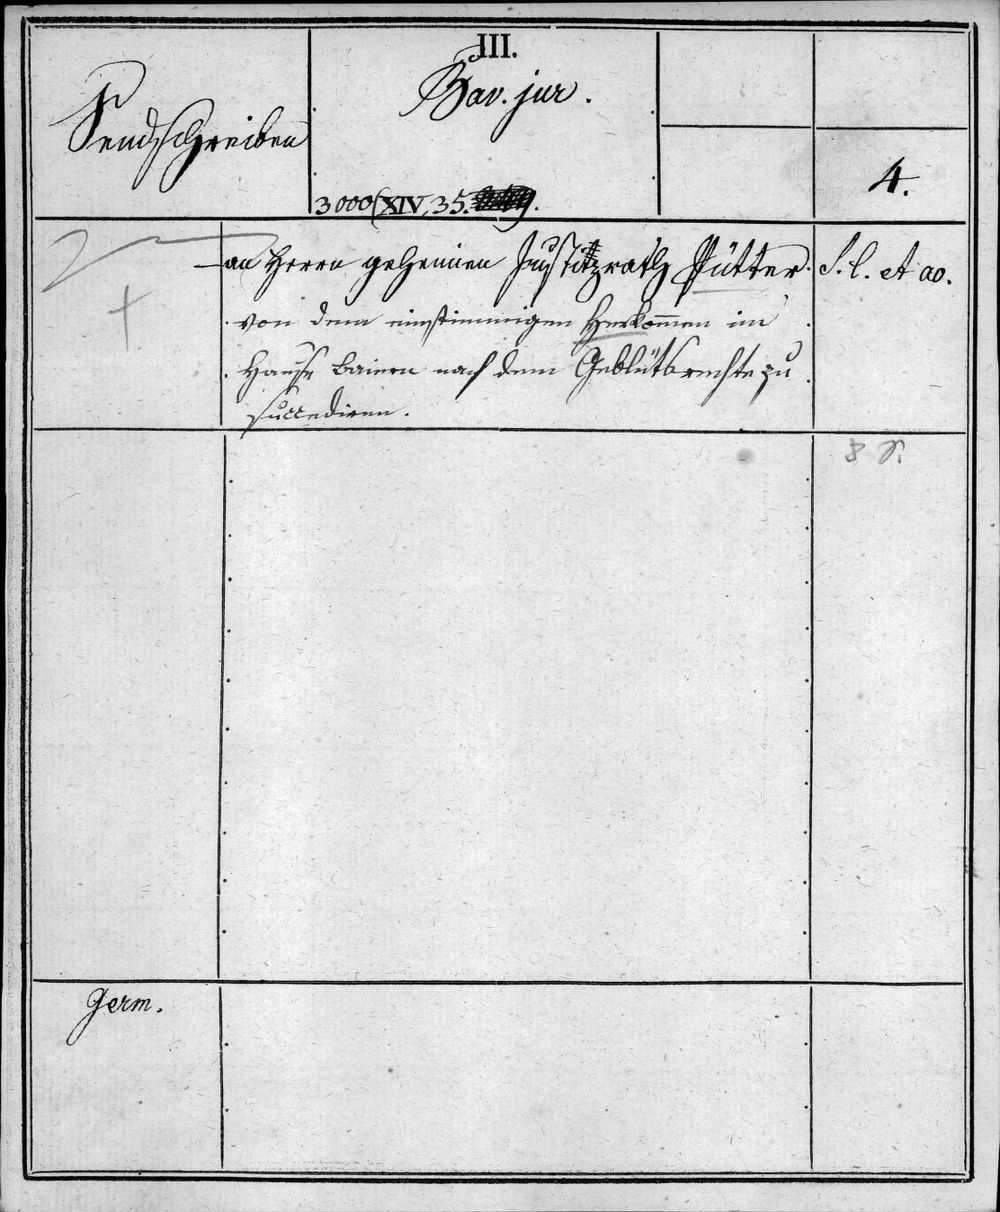 III.
Bav. jur.
Sendschreiben
4.
3000/XIV, 35.
an Herrn geheimen Justitzrath Pütter. S. l. et ao.
von dem einstimmigen Herkom̄en im
Hause Baiern nach dem Geblütsrechte zu
succediren.
Germ.